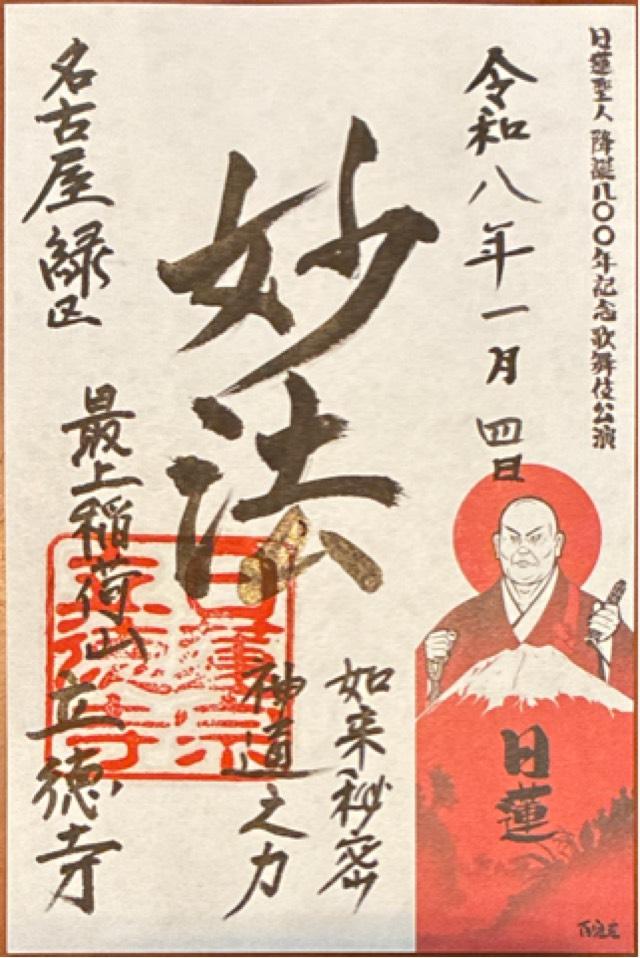 日蓮聖人 降誕八〇〇年記念 歌舞伎公演
令和八年一月四日
妙法
如来秘密
神通之力
名古屋緑区
最上稲荷山立德寺
日蓮宗
立德寺
日蓮